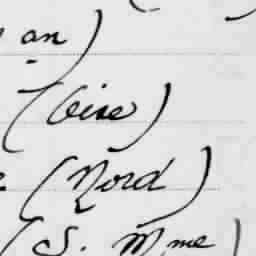 an)
(Oise)
(Nord)
(S. M, me)